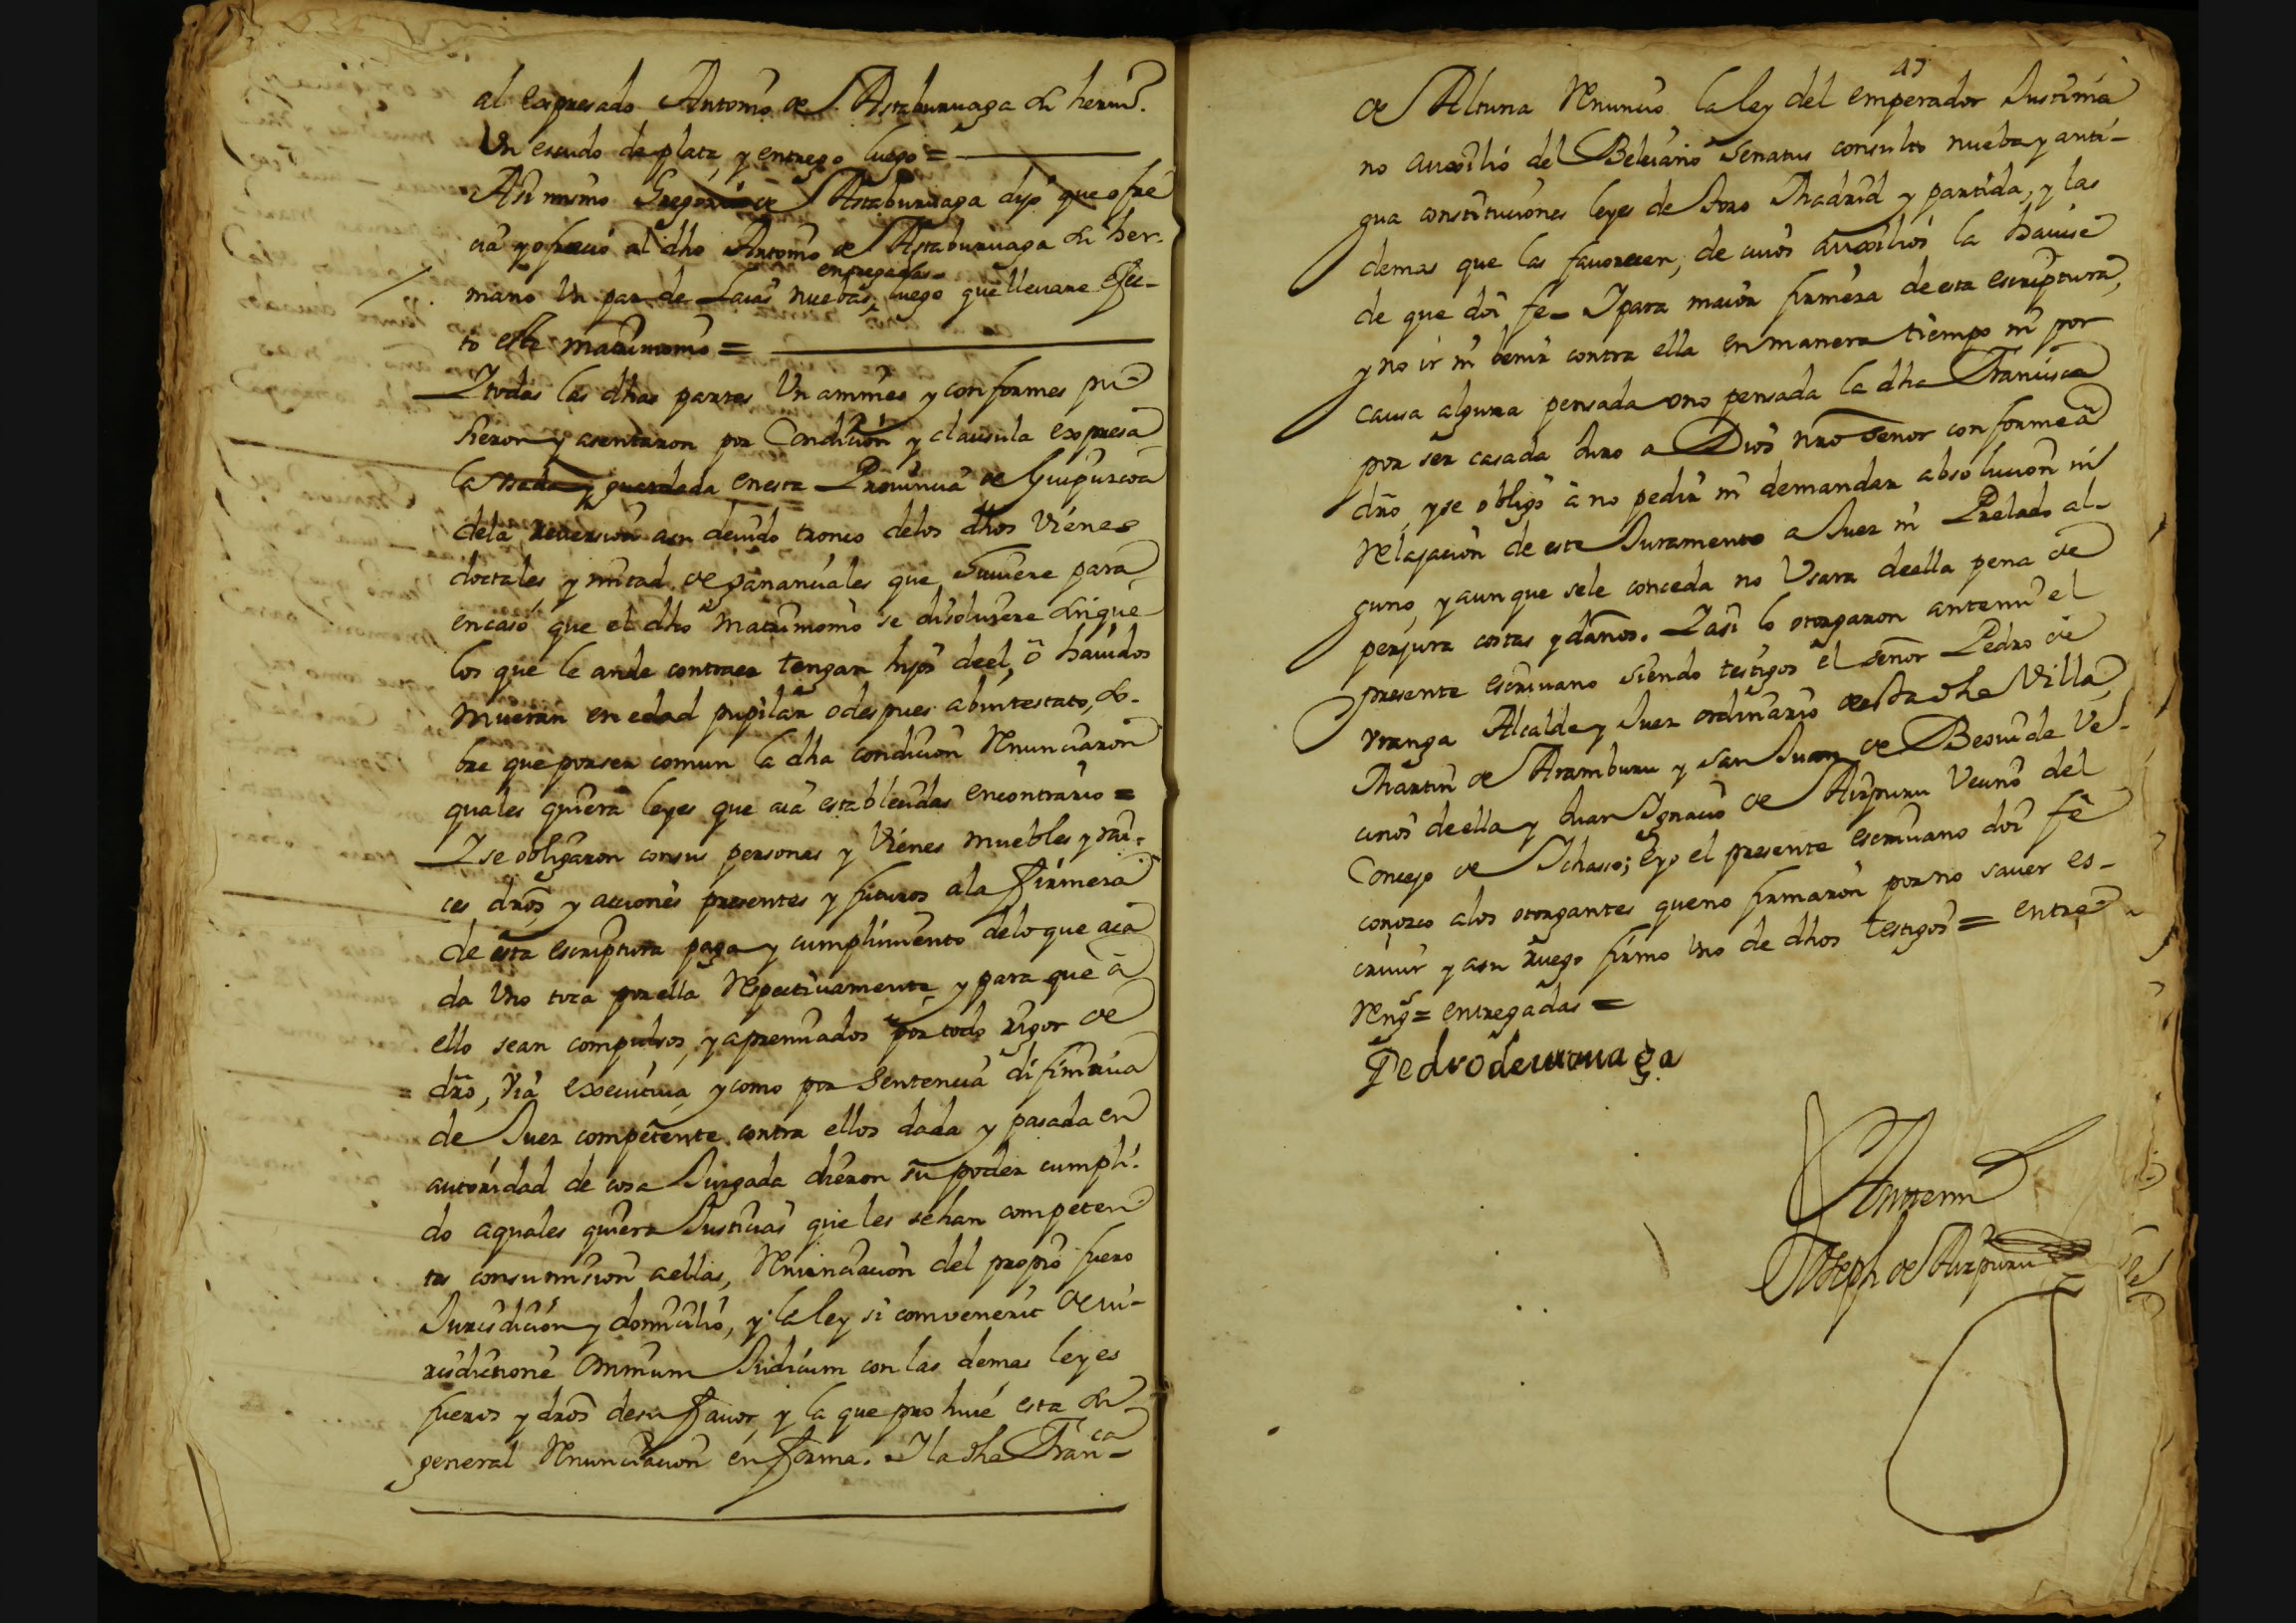 al expresado Antonio de Astaburuaga su herm.º
Un escudo de plata, y entrego luego =
Asi mismo Gregorio de Astaburuaga dijo que ofre
cia y ofrecio al dho Antonio de Astaburuaga su her-
entregadas
mano Un par de Laias nuebas, luego que lleuare efec-
to este matrimonio =
Y todas las dhas partes Unanimes y conformes pu
sieron y asentaron por Condicion y clausula expresa
la usada y guardada en esta Prouincia de Guipuzcoa
dela reuersion asu deuido tronco delos dhos Vienes
doctales, y mitad de gananciales que huuiere para
encaso que el dho matrimonio se disoluiere sin que
los que le ande contraer tengan hijos deel, ô hauidos
mueran en edad pupilar o despues abintestato, so-
bre que por ser comun la dha condicion Renunciaron
quales quiera leyes que aia establecidas encontrario =
Y se obligaron consus personas y Vienes muebles y rai-
ces, dros, y acciones presentes y futuros ala firmeza
de esta escriptura paga y cumplimiento delo que aca
da Uno toca por ella Respectiuamente, y para que à
ello sean compulsos, y apremiados por todo rigor de
= dro, via executiua, y como por Sentencia difinitiua
de Juez competente contra ellos dada y pasada en
autoridad de cosa Juzgada dieron su poder cumpli-
do aquales quiera Justicias que les sehan competen
tes consumision aellas, Renunciacion del propio fuero
Jurisdicion y domicilio, y la ley si convenerit de iu-
risdictione Omnium Judicum con las demas leyes
fueros y dros desu fauor, y la que prohiue esta su
general Renunciacion en forma. Y la dha Fran.ca
45
de Altuna Renuncio la ley del emperador Justinia
no auxilio del Beleiano Senatus consulto nueba y anti-
gua constituciones leyes de Toro Madrid y partida, y las
demas que las fauorecen, de cuios auxilios la hauise
de que doi fe. Y para maior firmeza de esta escriptura,
y no ir ni benir contra ella en manera tiempo ni por
causa alguna pensada ono pensada la dha Francisca
por ser casada Juro a Dios nro Señor conforme a
dro, y se obligo â no pedir ni demandar absolucion ni
Relajacion de este Juramento a Juez ni Prelado al-
guno, y aun que sele conceda no Usara deella pena de
perjura costas y daños. Y asi lo otorgaron antemi el
presente escriuano siendo testigos el señor Pedro de
Vranga Alcalde y Juez ordinario de esta dha Villa,
Martin de Aramburu y San Juan de Beouide Ve-
cinos deella y Juan Ygnacio de Aizpuru Vecino del
Concejo de Ychasso; E yo el presente escriuano doi fê
conozco alos otorgantes que no firmaron por no sauer es-
criuir y asu ruego firmo Uno de dhos testigos = entre
Reng.s = entregadas =
Pedro de uranga
Antemi
Joseph de Aizpuru